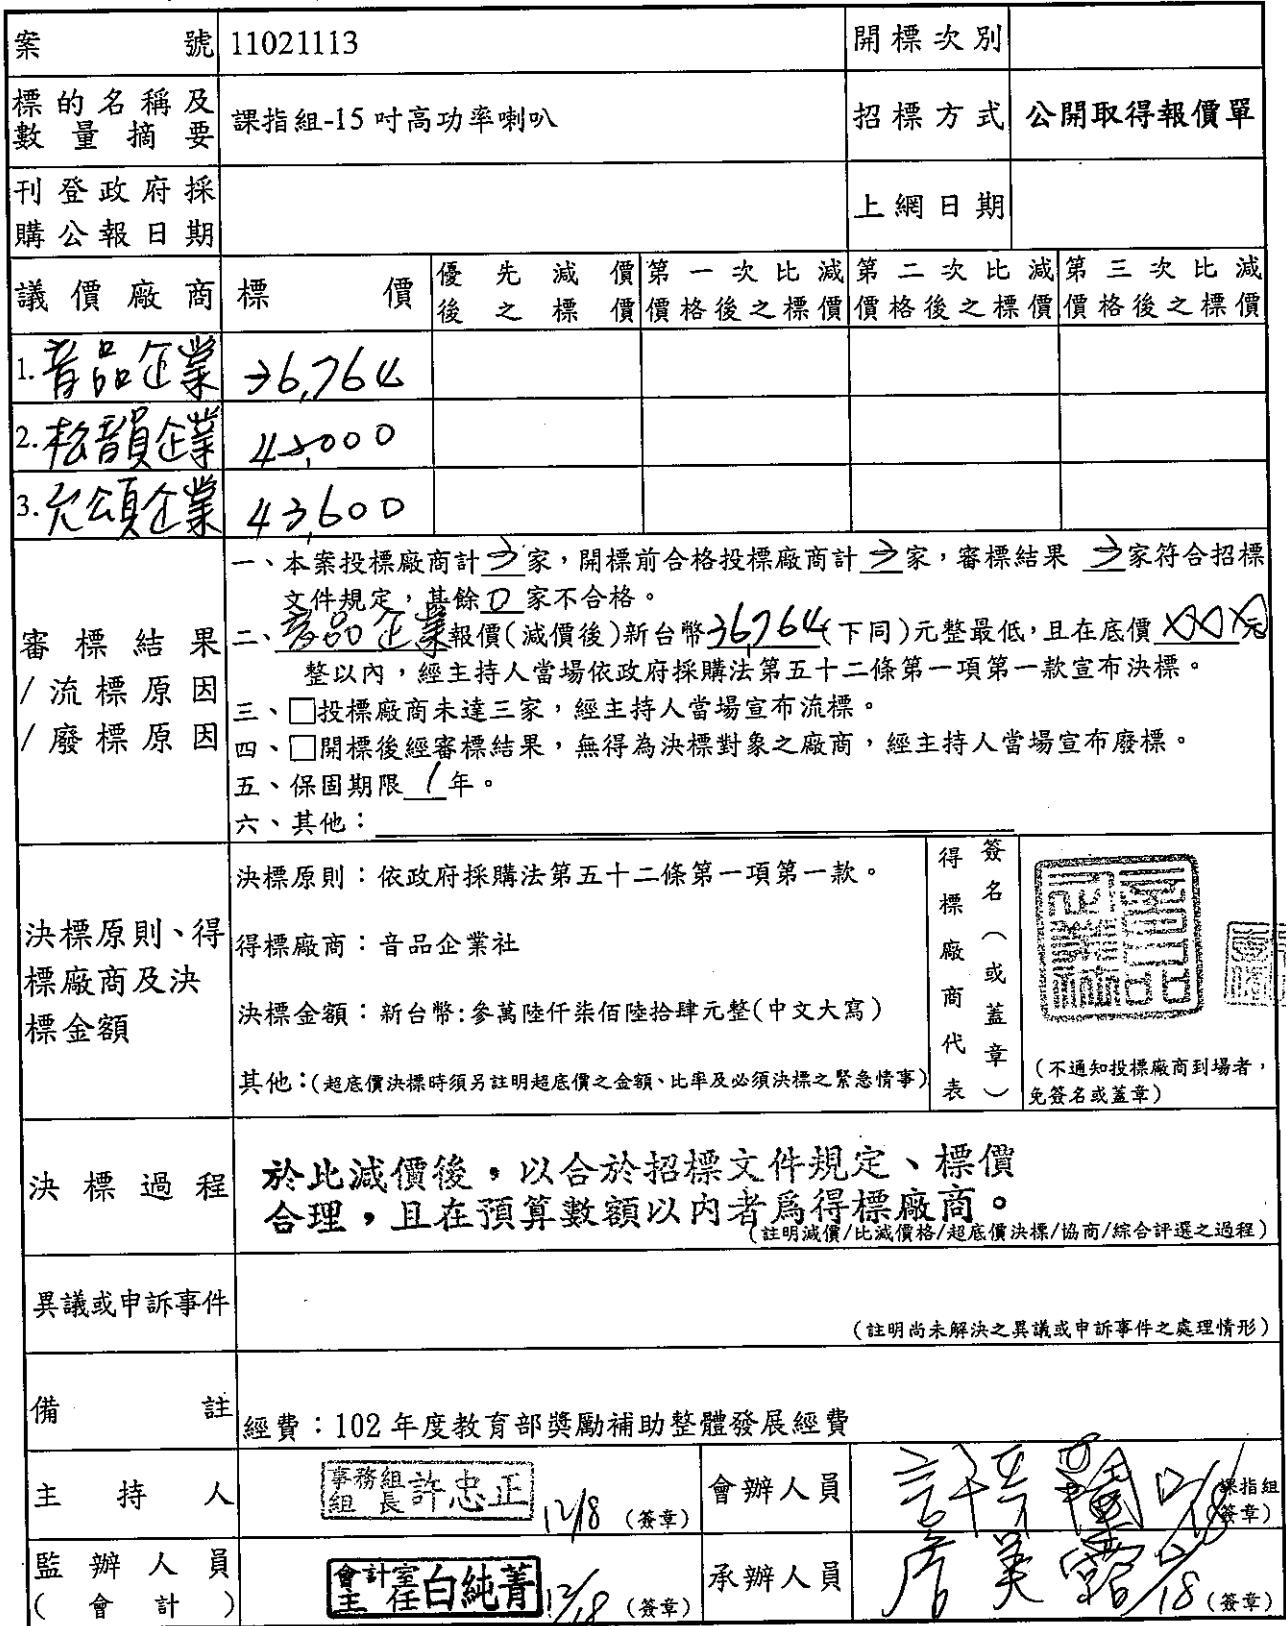 案號 11021113 開標次別
標的名稱及數量摘要 課指組-15吋高功率喇叭 招標方式 公開取得報價單
刊登政府採購公報日期 上網日期
議價廠商 標價 優先減價後之標價 第一次比減價格後之標價 第二次比減價格後之標價 第三次比減價格後之標價
1.音品企業 36,764
2.松韻企業
3.允頌企業 43,600
審標結果/流標原因/廢標原因
一、本案投標廠商計3家，開標前合格投標廠商計3家，審標結果 3家符合招標
文件規定，其餘0家不合格。
二、音品企業報價(減價後)新台幣36,764(下同)元整最低，且在底價XXX元
整以內，經主持人當場依政府採購法第五十二條第一項第一款宣布決標。
三、□投標廠商未達三家，經主持人當場宣布流標。
四、□開標後經審標結果，無得為決標對象之廠商，經主持人當場宣布廢標。
五、保固期限1年。
六、其他：
決標原則、得標廠商及決標金額
決標原則：依政府採購法第五十二條第一項第一款。
得標廠商：音品企業社
決標金額：新台幣:參萬陸仟柒佰陸拾肆元整(中文大寫)
其他：(超底價決標時須另註明超底價之金額、比率及必須決標之緊急情事)
得標廠商代表
簽名（或蓋章）
(不通知投標廠商到場者，
免簽名或蓋章)
決標過程
於比減價後，以合於招標文件規定、標價
合理，且在預算數額以內者為得標廠商。
(註明減價/比減價格/超底價決標/協商/綜合評選之過程)
異議或申訴事件
(註明尚未解決之異議或申訴事件之處理情形)
備註 經費：102年度教育部獎勵補助整體發展經費
主持人 事務組組長 許忠正 12/18 (簽章) 會辦人員 12/18 課指組 簽章)
監辦人員(會計) 會計室主任 白純菁 12/18 (簽章) 承辦人員 12/18 (簽章)